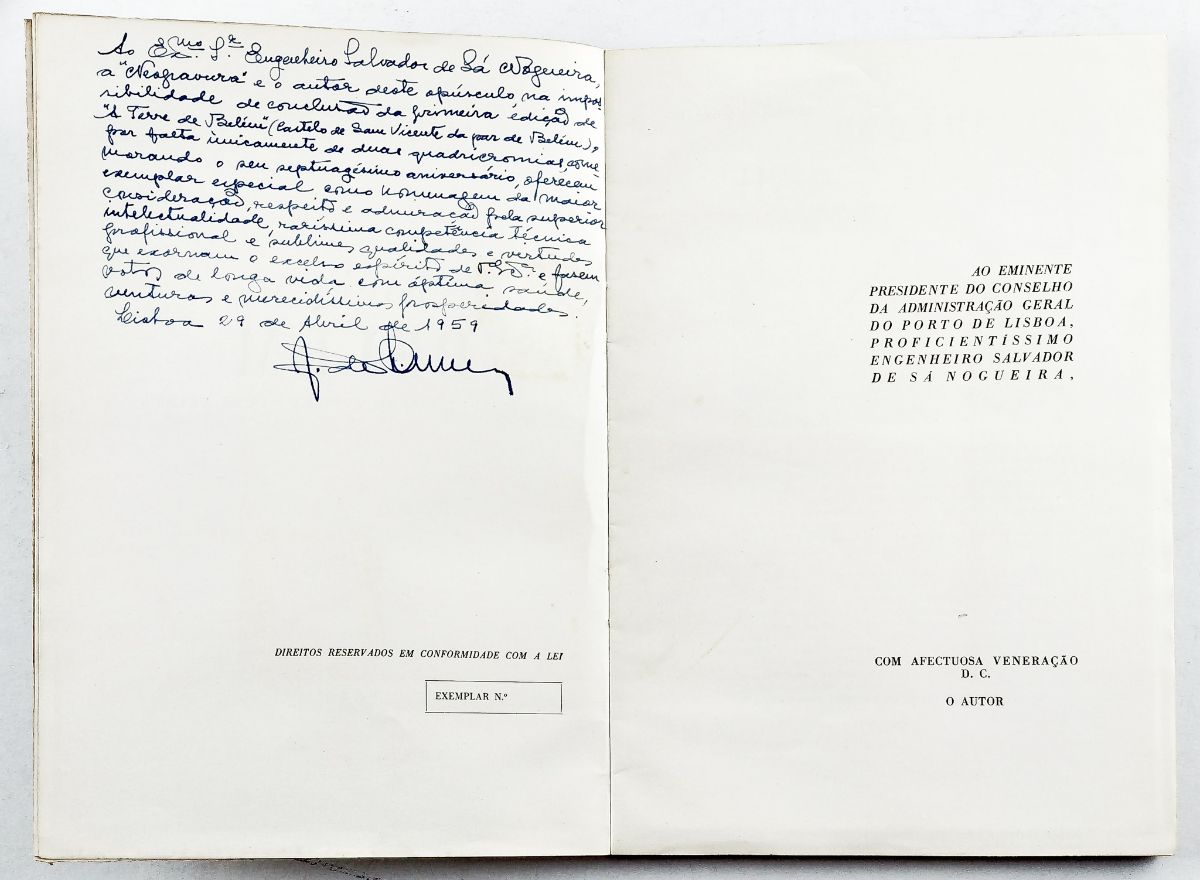 Ao Ex.mo S.r Engenheiro Salvador de Sá Nogueira,
a "Neogravura" e o autor deste opúsculo na impos
sibilidade de conclusão da primeira edição de
"A Torre de Belém" (Castelo de Sam Vicente da par de Belém),
por falta ùnicamente de duas quadricromias, come
morando o seu septuagésimo aniversário, oferecem
exemplar especial como homenagem da maior
consideração, respeito e admiração pela superior
intelectualidade, raríssima competência técnica
profissional e sublimes qualidades e virtudes
que exornam o excelso espírito de V. Ex.ª e fazem
votos de longa vida com óptima saúde,
venturas e merecidíssimas prosperidades.
Lisboa 29 de Abril de 1959
DIREITOS RESERVADOS EM CONFORMIDADE COM A LEI
EXEMPLAR N.º
AO EMINENTE
PRESIDENTE DO CONSELHO
DA ADMINISTRAÇÃO GERAL
DO PORTO DE LISBOA,
PROFICIENTÍSSIMO
ENGENHEIRO SALVADOR
DE SÁ NOGUEIRA,
COM AFECTUOSA VENERAÇÃO
D. C.
O AUTOR